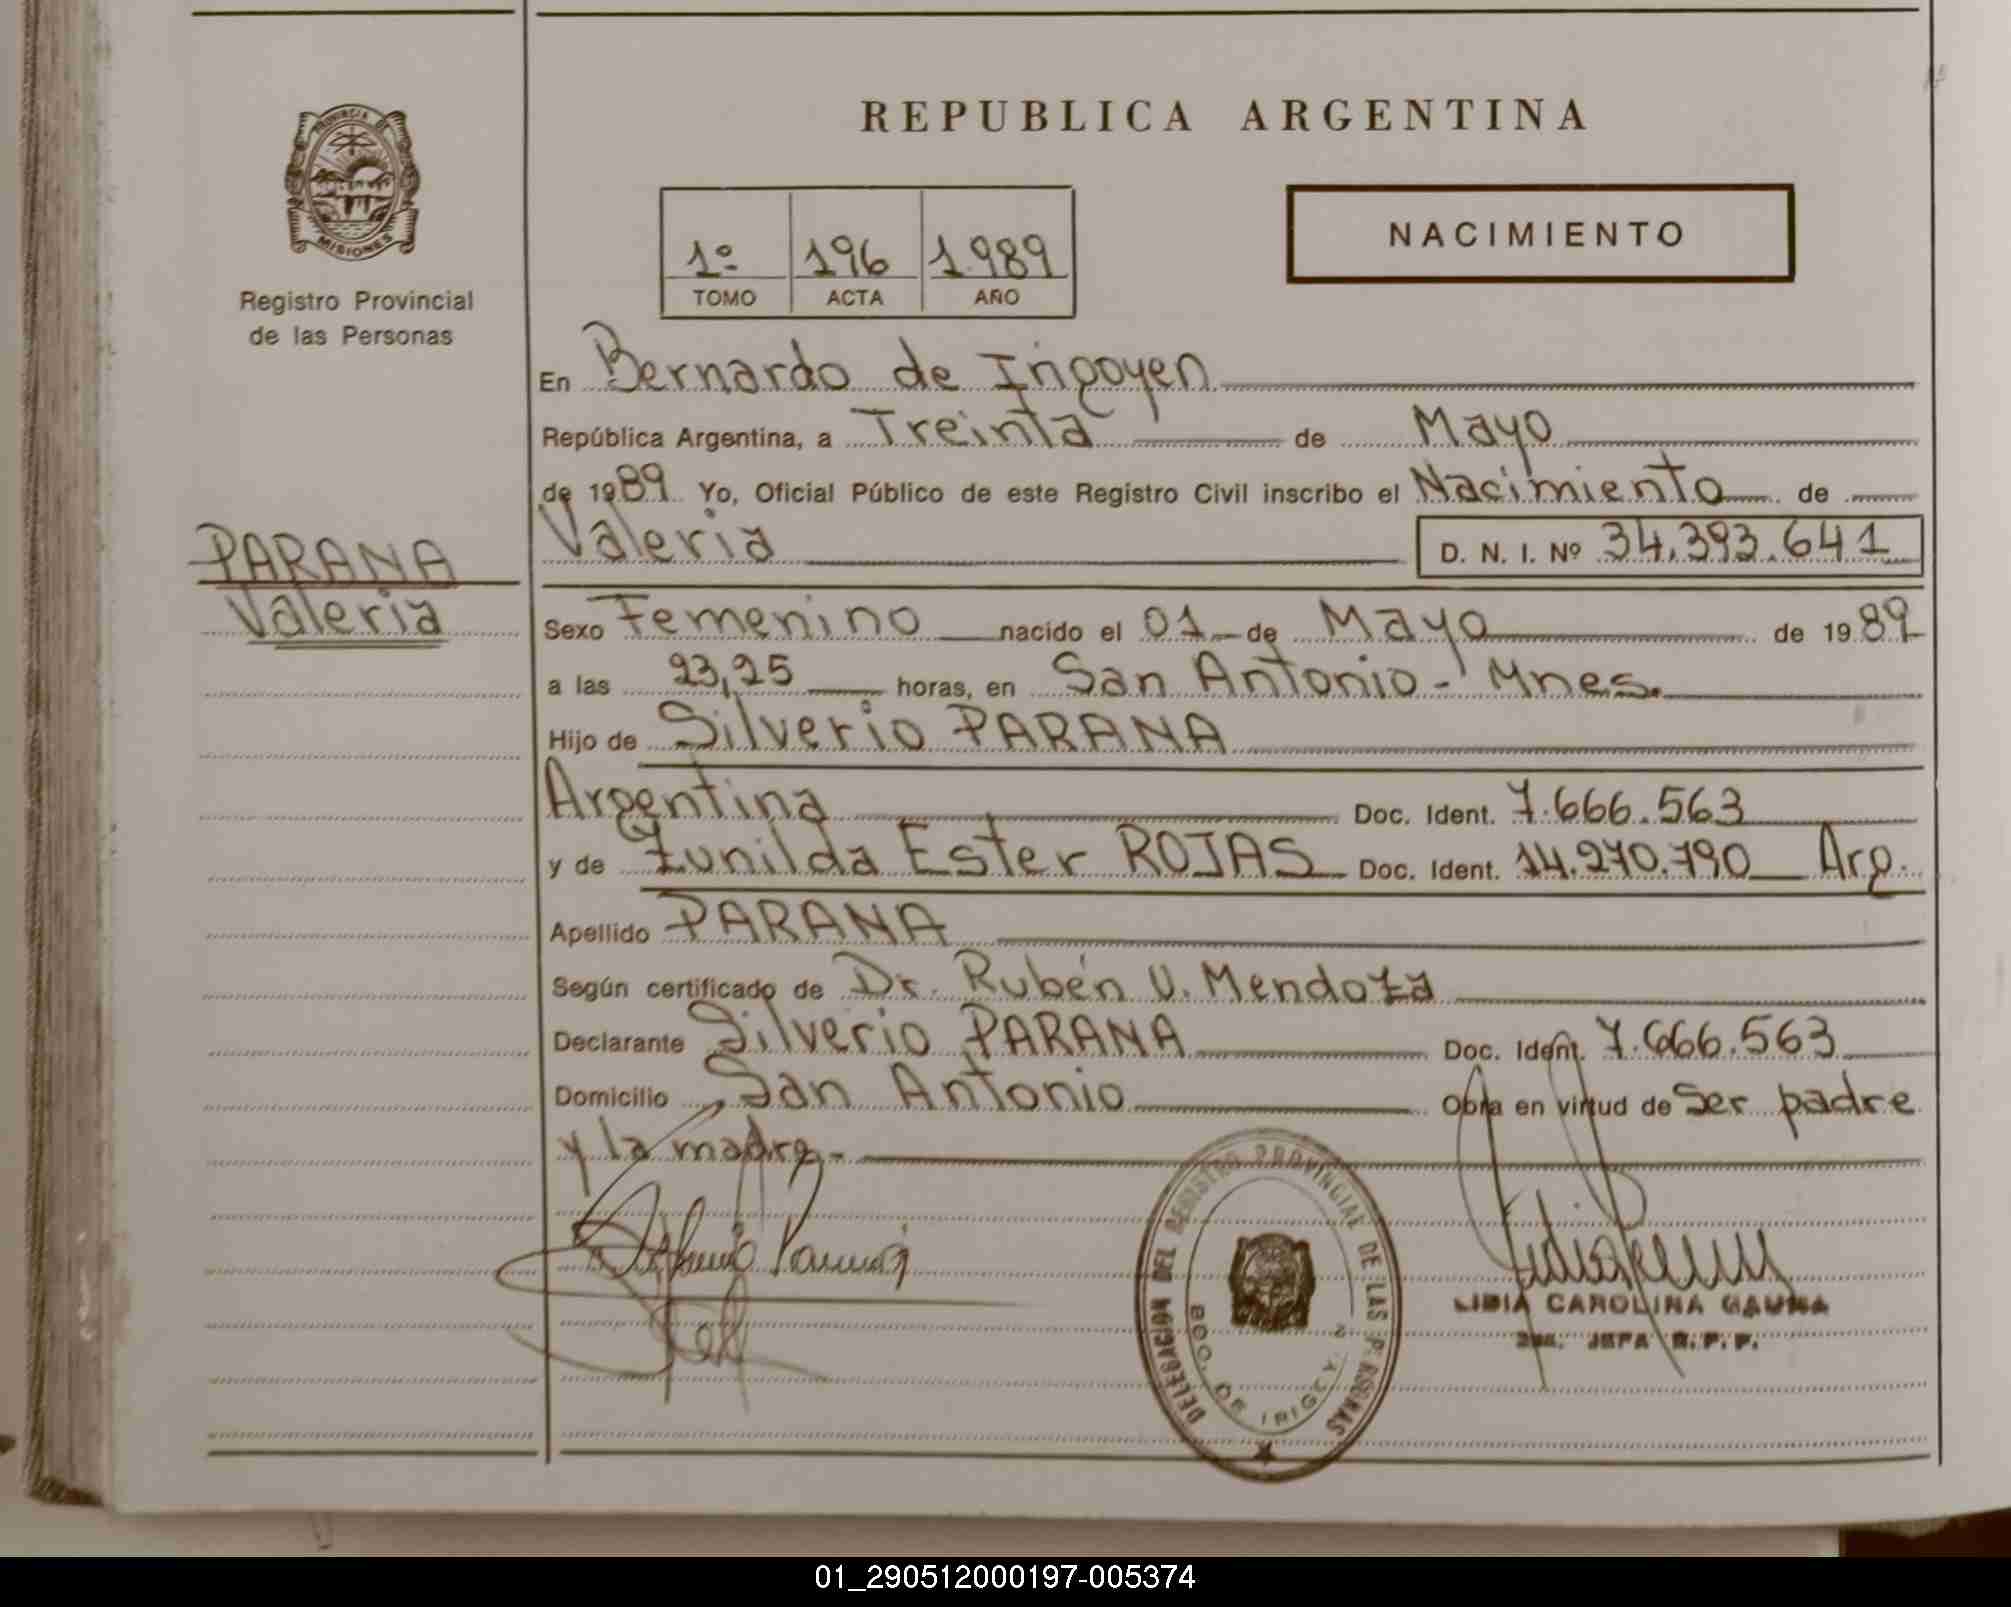 REPUBLICA ARGENTINA
PROVINCIA DE
MISIONES
Registro Provincial
de las Personas
1º 196 1.989
TOMO ACTA AÑO
NACIMIENTO
En Bernardo de Irigoyen
República Argentina, a Treinta de Mayo
de 1989 Yo, Oficial Público de este Registro Civil inscribo el Nacimiento de
Valeria D. N. I. Nº 34.393.641
PARANA
Valeria
Sexo Femenino nacido el 01 de Mayo de 1989
a las 23,25 horas, en San Antonio - Mnes.
Hijo de Silverio PARANA
Argentina Doc. Ident. 7.666.563
y de Zunilda Ester ROJAS Doc. Ident. 14.270.790 Arg.
Apellido PARANA
Según certificado de Dr. Rubén V. Mendoza
Declarante Silverio PARANA Doc. Ident. 7.666.563
Domicilio San Antonio Obra en virtud de ser padre
y la madre.-
DELEGACION DEL REGISTRO PROVINCIAL DE LAS PERSONAS
BDO. DE IRIGOY
LIDIA CAROLINA GAUNA
JEFA R. P. P.
01_290512000197-005374